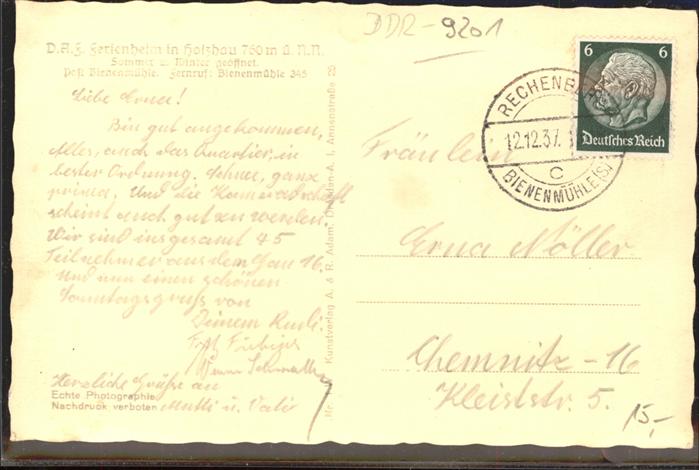 DDR-9201
D.A.F. Ferienheim in Holzhau 760 m ü. N.N.
Sommer u. Winter geöffnet.
Post Bienenmühle. Fernruf: Bienenmühle 345
Liebe Erna!
Bin gut angekommen,
Alles, auch das Quartier, in
bester Ordnung. Schnee, ganz
prima. Und die Kameradschaft
scheint auch gut zu werden.
Wir sind insgesamt 45
Teilnehmer aus dem Gau 16.
Und nun einen schönen
Sonntagsgruß von
Deinem Rudi.
Herzliche Grüße an
Mutti u. Vati
Echte Photographie
Nachdruck verboten
Kunstverlag A. & R. Adam, Dresden-A. 1, Amnonstraße 25
Nr.
6 6
Deutsches Reich
RECHENBERG
12.12.37.
C
BIENENMÜHLE (S)
Fräulein
Erna Nöller
Chemnitz - 16
Kleiststr. 5.
15,-